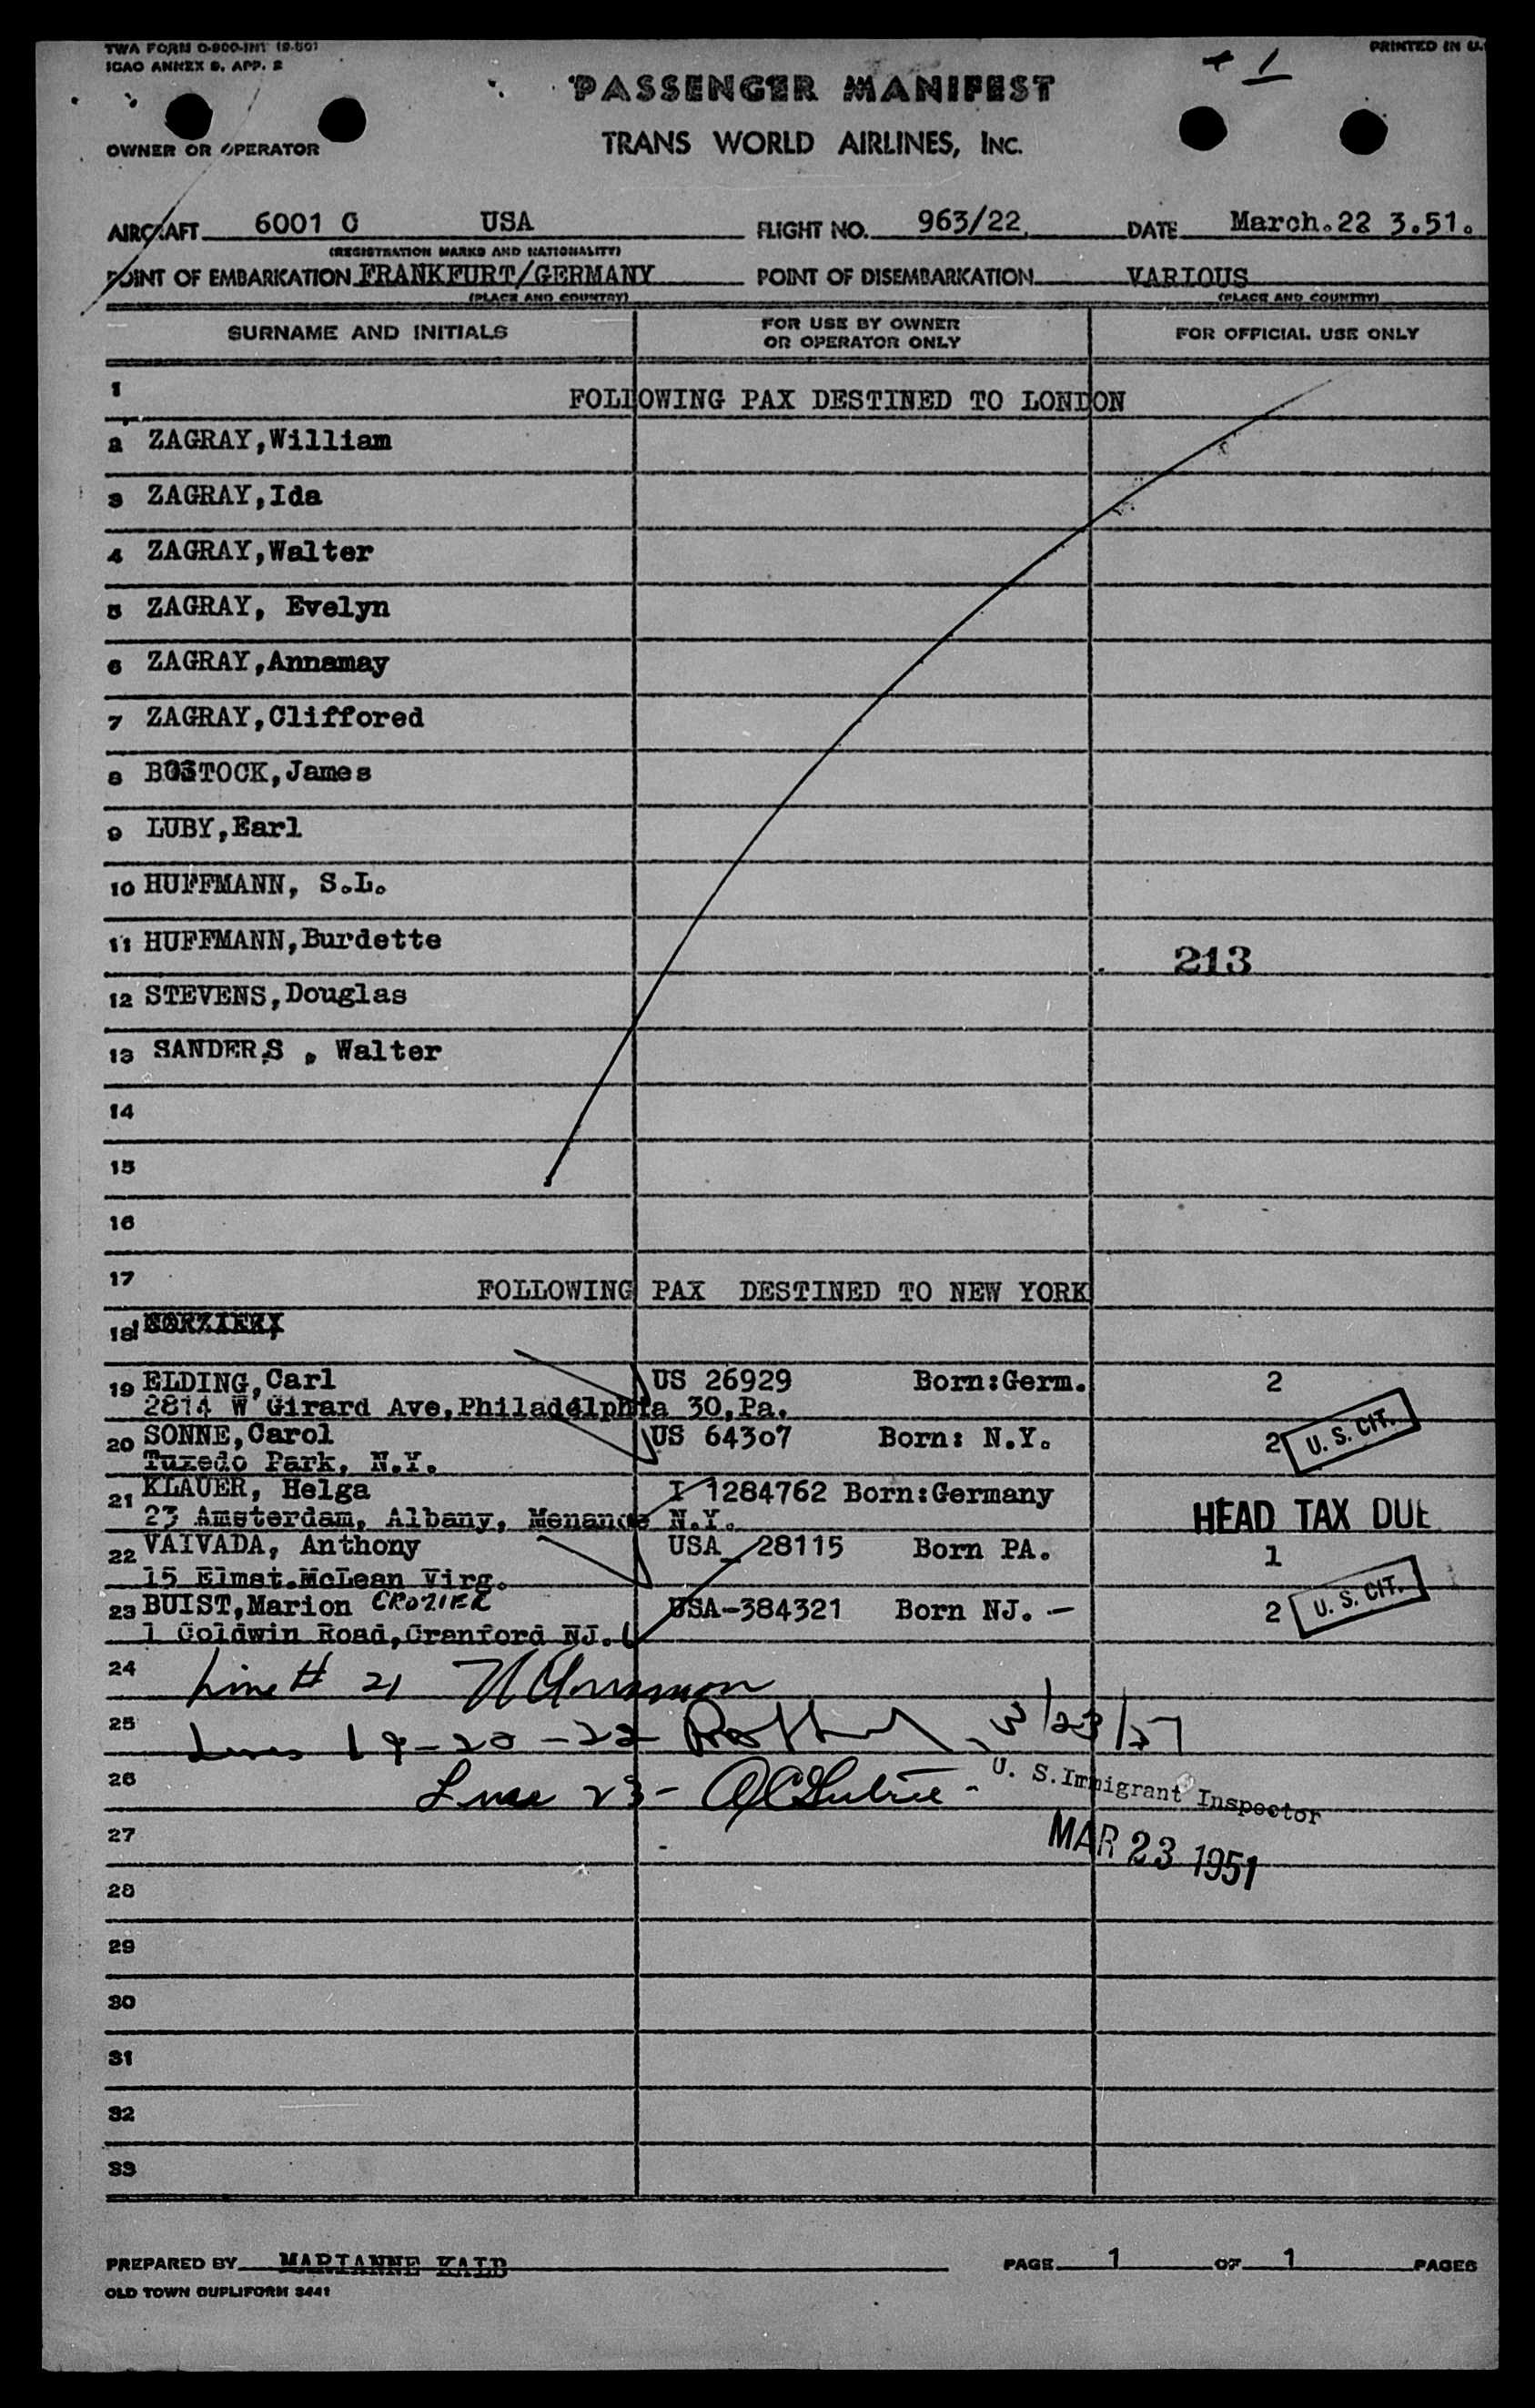 TWA FORM O-800-INT (9-50)
PRINTED IN U.
ICAO ANNEX 9, APP. 2
1
PASSENGER MANIFEST
OWNER OR OPERATOR
TRANS WORLD AIRLINES, INC.
AIRCRAFT 6001 C USA FLIGHT NO. 963/22 DATE March.22 3.51.
(REGISTRATION MARKS AND NATIONALITY)
POINT OF EMBARKATION FRANKFURT/GERMANY POINT OF DISEMBARKATION VARIOUS
(PLACE AND COUNTRY) (PLACE AND COUNTRY)
SURNAME AND INITIALS FOR USE BY OWNER OR OPERATOR ONLY FOR OFFICIAL USE ONLY
1 FOLLOWING PAX DESTINED TO LONDON
2 ZAGRAY,William
3 ZAGRAY,Ida
4 ZAGRAY,Walter
5 ZAGRAY, Evelyn
6 ZAGRAY,Annamay
7 ZAGRAY,Cliffored
8 BOSTOCK,James
9 LUBY,Earl
10 HUFFMANN, S.L.
11 HUFFMANN,Burdette
213
12 STEVENS,Douglas
13 SANDERS , Walter
14
15
16
17 FOLLOWING PAX DESTINED TO NEW YORK
18
19 ELDING,Carl US 26929 Born:Germ. 2
2814 W Girard Ave,Philadelphia 30,Pa.
20 SONNE,Carol US 64307 Born: N.Y. 2 U. S. CIT.
Tuxedo Park, N.Y.
21 KLAUER, Helga I 1284762 Born:Germany
23 Amsterdam, Albany, Menands N.Y. HEAD TAX DUE
22 VAIVADA, Anthony USA 28115 Born PA. 1
15 Elmst.McLean Virg.
23 BUIST,Marion CROZIER USA-384321 Born NJ. - 2 U. S. CIT.
1 Coldwin Road,Cranford NJ.
24 Line # 21
25 Lines 19-20-22
26 Line 23-
U. S. Immigrant Inspector
27 MAR 23 1951
28
29
30
31
32
33
PREPARED BY MARIANNE KAIB PAGE 1 OF 1 PAGES
OLD TOWN DUPLIFORM 3441